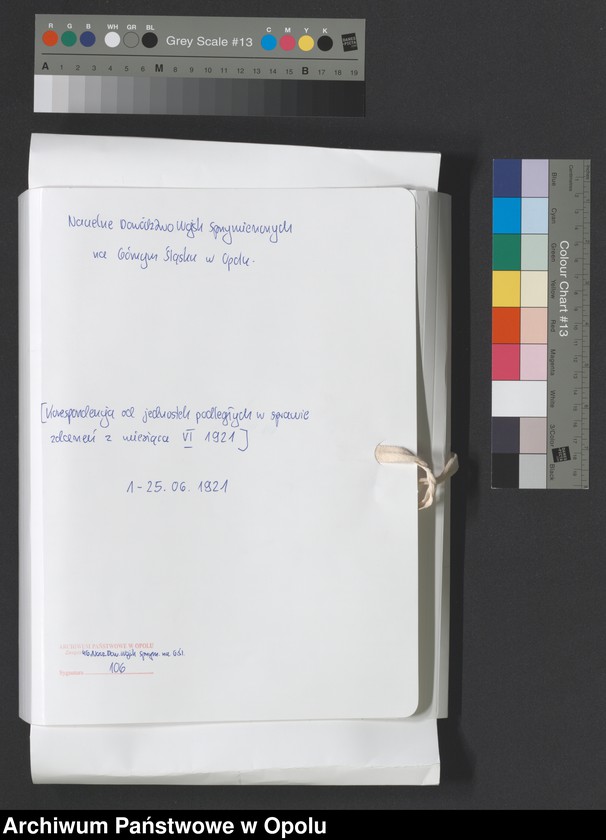 R G B WH GR BL Grey Scale #13 C M Y K
A 1 2 3 4 5 6 M 8 9 10 11 12 13 14 15 B 17 18 19
Naczelne Dowództwo Wojsk Sprzymierzonych
na Górnym Śląsku w Opolu.
[Korespondencja od jednostek podległych w sprawie
zdarzeń z miesiąca VI 1921]
1-25.06.1921
ARCHIWUM PAŃSTWOWE W OPOLU
Zespół Wb.Nacz.Dow.Wojsk Sprzym. na G.Śl.
Sygnatura 106
Colour Chart #13
Blue
Cyan
Green
Yellow
Red
Magenta
White
3/Color
Black
Centimetres
Archiwum Państwowe w Opolu